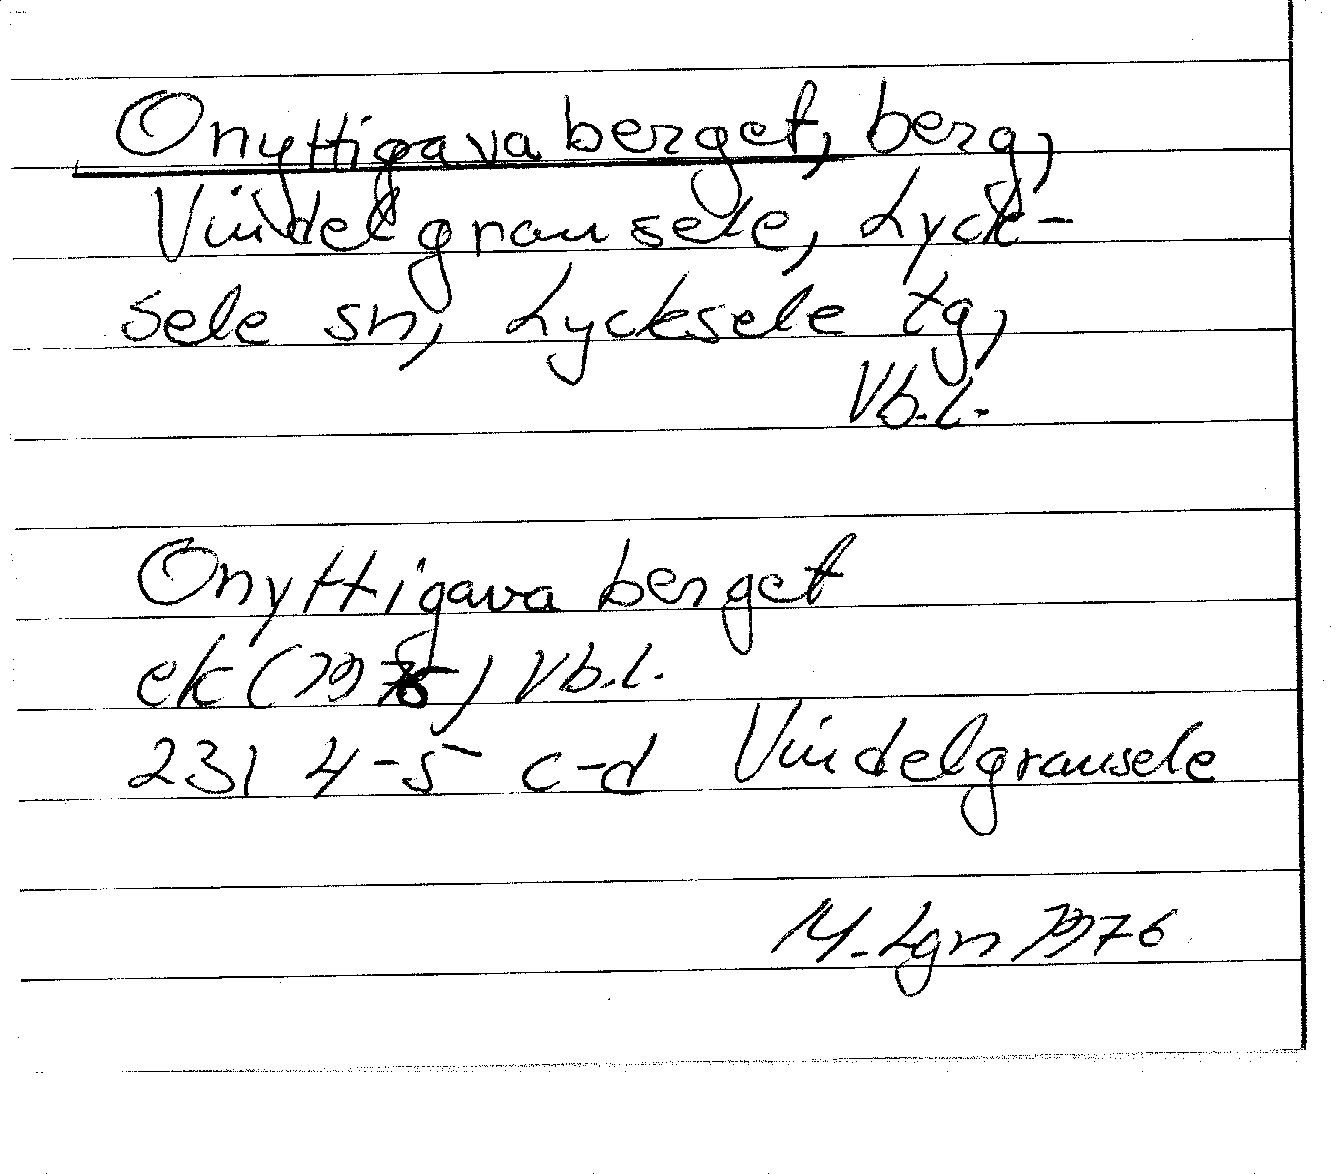 Onyttigava berget, berg,
Vindelgransele, Lyck-
sele sn, Lycksele tg,
Vb.l.
Onyttigava berget
ek () Vb.l.
231 4-5 c-d Vindelgransele
M. Lgn 1976